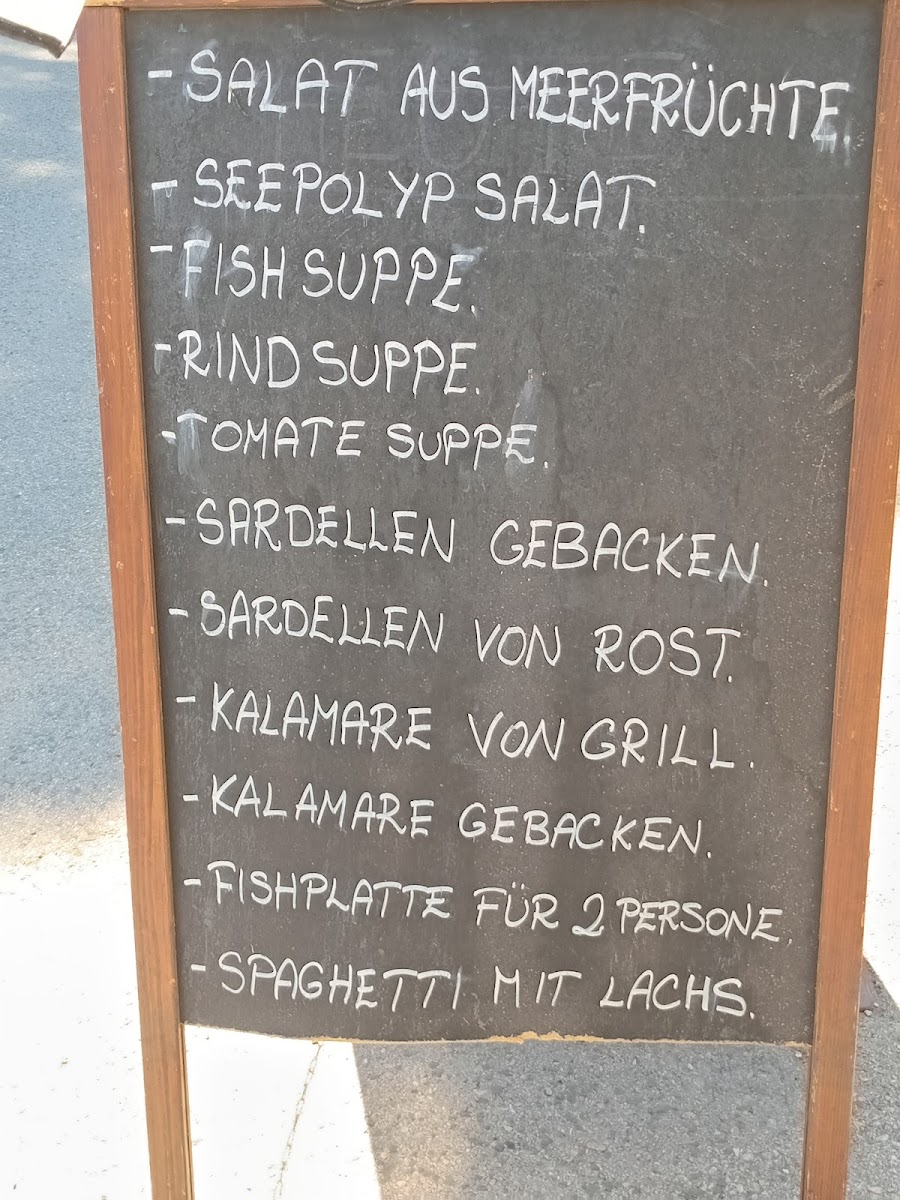 - SALAT AUS MEERFRÜCHTE.
- SEEPOLYP SALAT.
- FISH SUPPE.
- RIND SUPPE.
- TOMATE SUPPE.
- SARDELLEN GEBACKEN.
- SARDELLEN VON ROST.
- KALAMARE VON GRILL.
- KALAMARE GEBACKEN.
- FISHPLATTE FÜR 2 PERSONE.
- SPAGHETTI MIT LACHS.